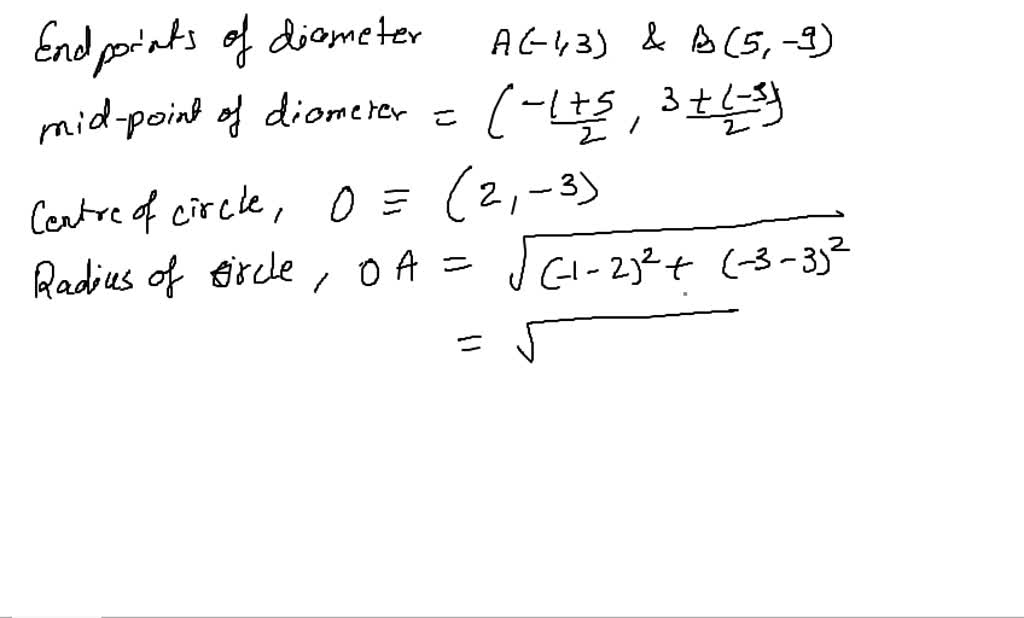 End points of diameter A(-1,3) & B(5,-9)
mid-point of diameter = (-1+5/2, 3+(-9)/2)
Centre of circle, O ≡ (2,-3)
Radius of circle, OA = √((-1-2)²+ (-3-3)²
= √